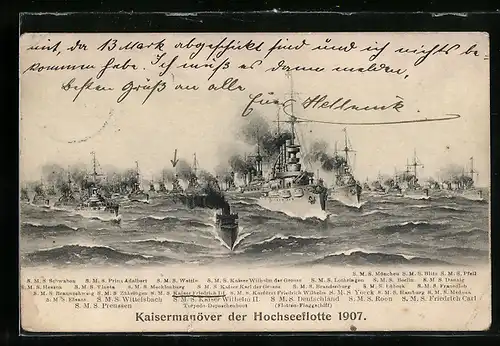 mit, da 13 Mark abgeschickt sind und ich nichts be-
kommen habe. Ich muß es dann melden,
besten Gruß an alle
Euer
S.M.S. München S.M.S. Blitz S.M.S. Pfeil
S.M.S. Schwaben S.M.S. Prinz Adalbert S.M.S. Wettin S.M.S. Kaiser Wilhelm der Grosse S.M.S. Lothringen S.M.S. Berlin S.M.S. Danzig
S.M.S. Hessen S.M.S. Vineta S.M.S. Mecklenburg S.M.S. Kaiser Karl der Grosse S.M.S. Brandenburg S.M.S. Lübeck S.M.S. Frauenlob
S.M.S. Braunschweig S.M.S. Zähringen S.M.S. Kaiser Friedrich III. S.M.S. Kurfürst Friedrich Wilhelm S.M.S. Yorck S.M.S. Hamburg S.M.S. Medusa
S.M.S. Elsass S.M.S. Wittelsbach S.M.S. Kaiser Wilhelm II. S.M.S. Deutschland S.M.S. Roon S.M.S. Friedrich Carl
S.M.S. Preussen Torpedo-Depeschenboot (Flotten-Flaggschiff)
Kaisermanöver der Hochseeflotte 1907.